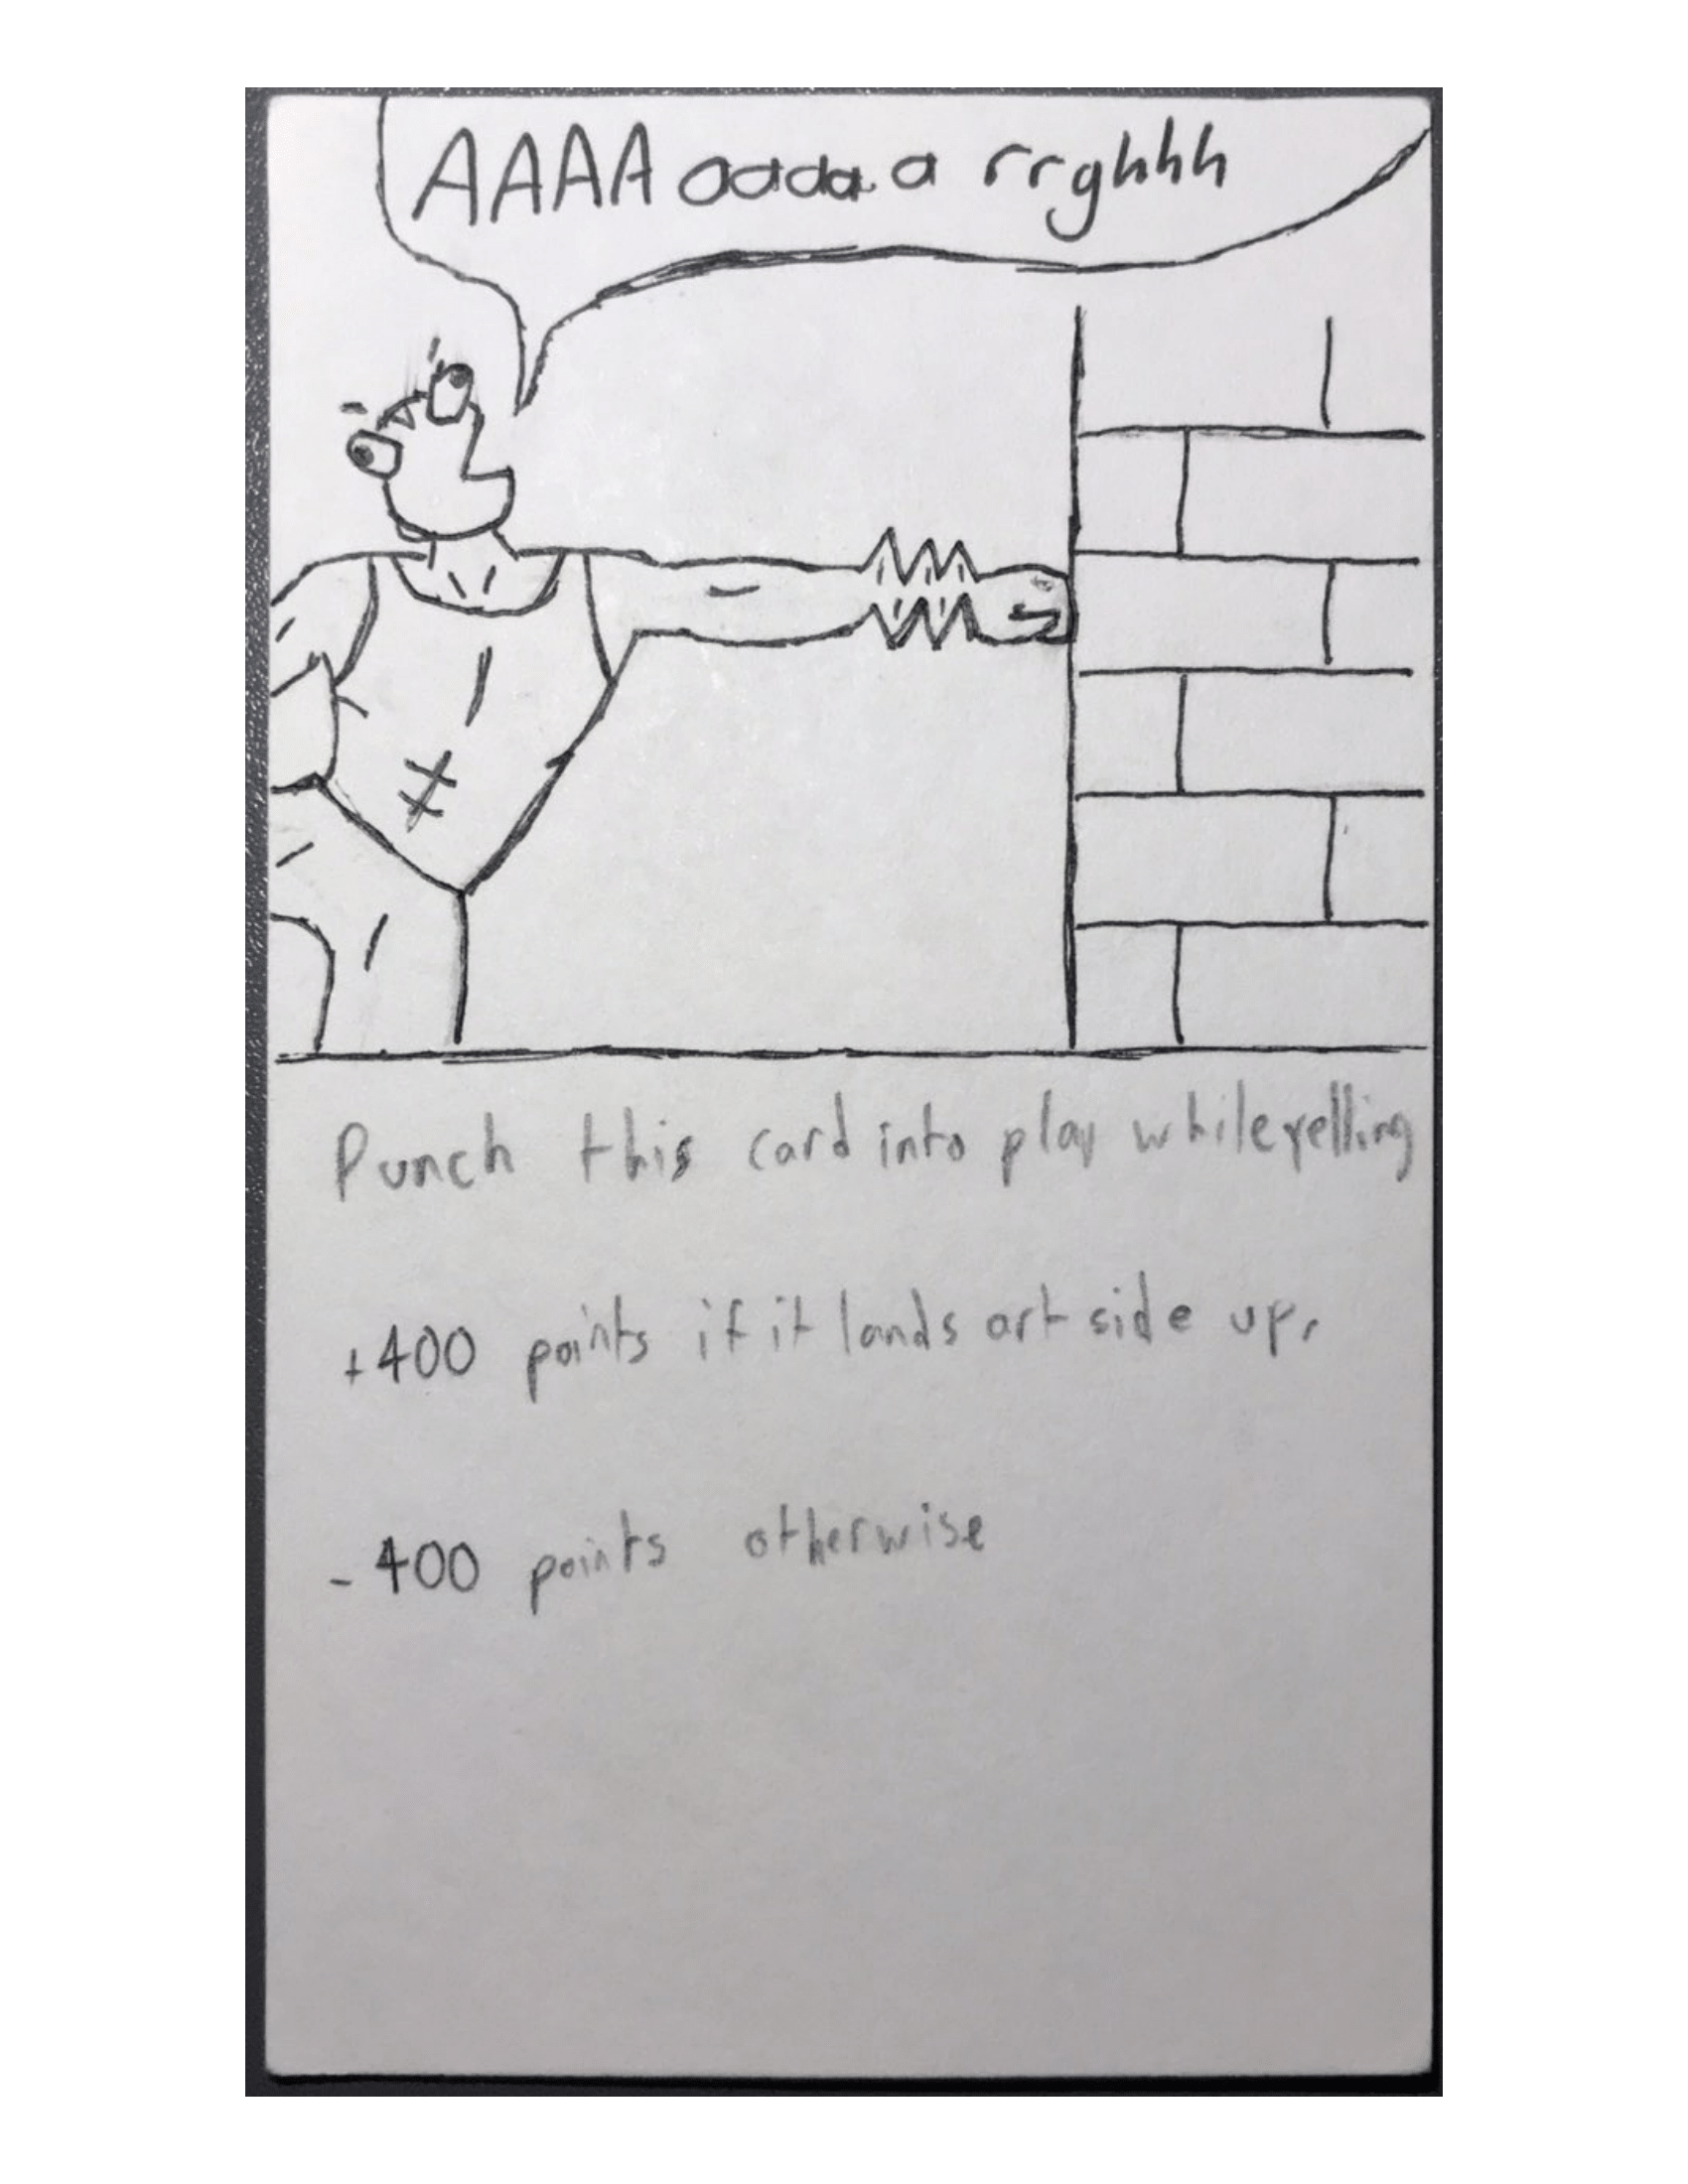 AAAA aaaa a rrghhh
Punch this card into play while yelling
+400 points if it lands art side up.
- 400 points otherwise